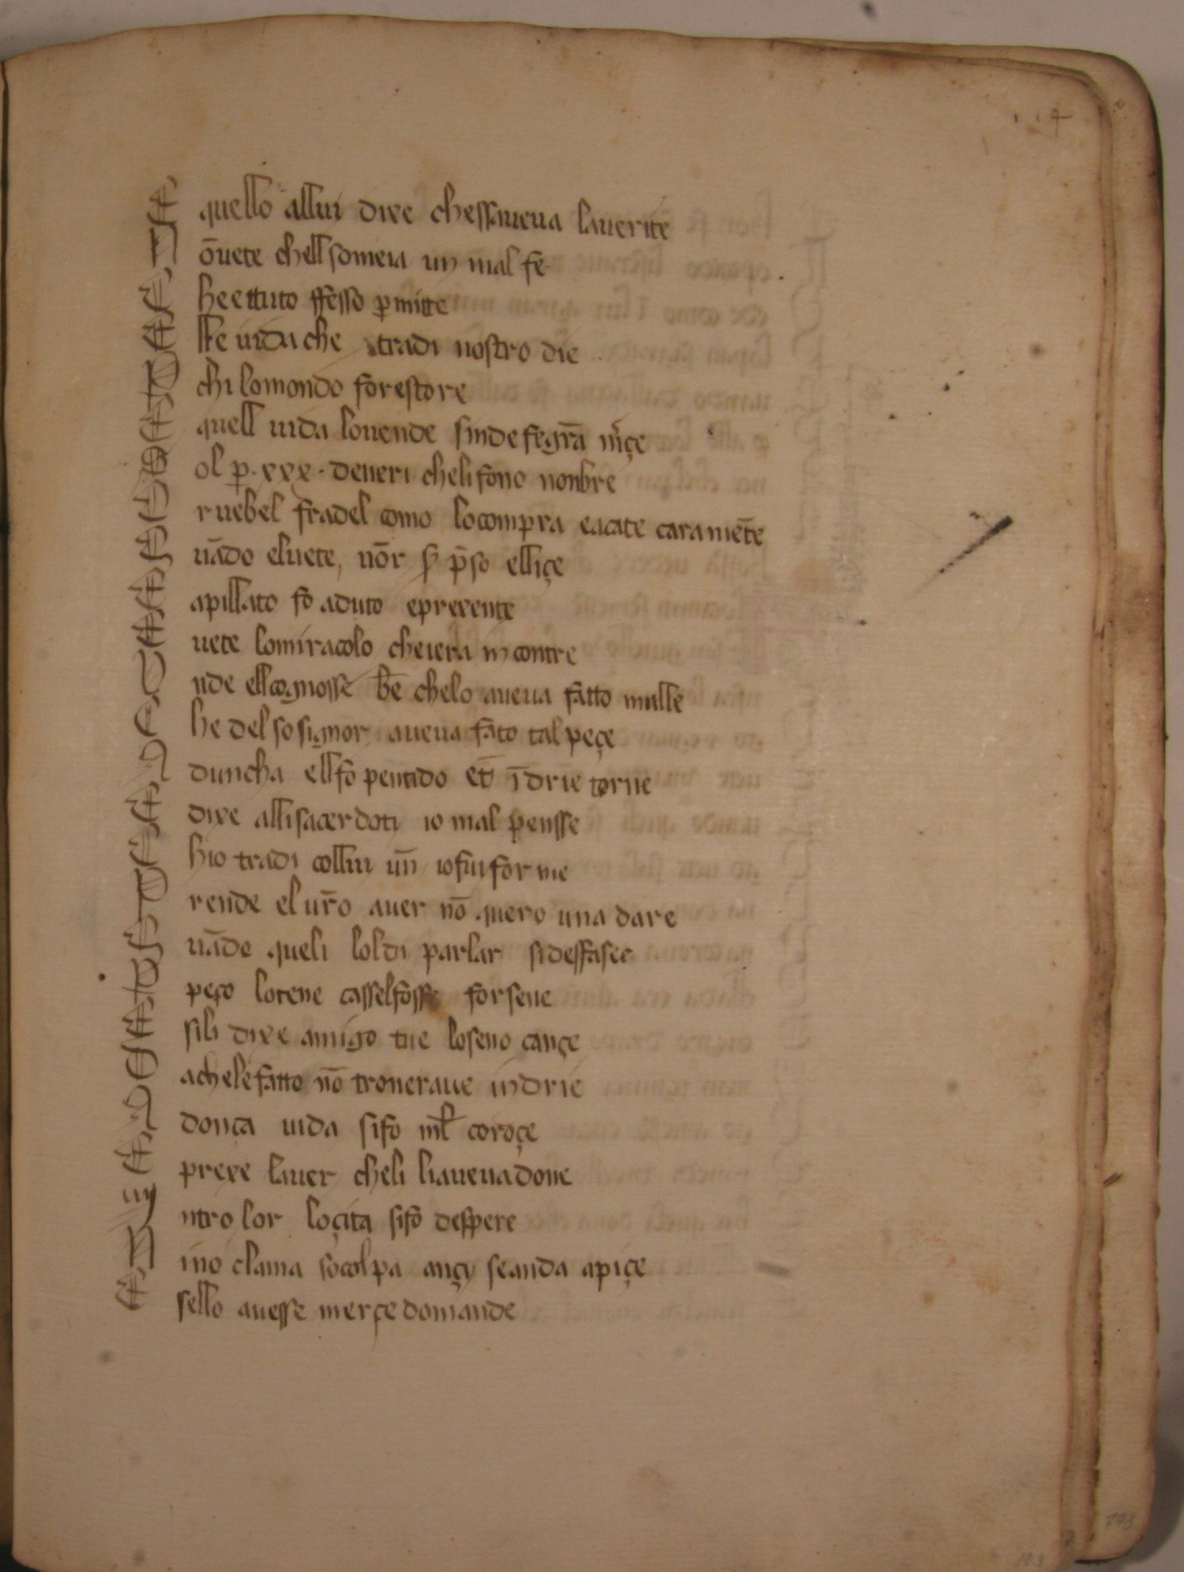 114
E quello allui dixe chessaueua lauerite
N õuete chell someia un mal fe
C he ettuto ffesso p mitte
E lle uida che tradi nostro die
P chi lomondo forestore
E quell uida louende sinde fegrã
D ol p. xxx. deneri cheli fono nonbre
C ruebel fradel como locompra eacate caramẽte
Q uãdo eluete, p̃so elliçe
E apillato fõ aduto eprexente
E uete lomiracolo cheiera incontre
U nde ellcognosse bẽ chelo aueua fatto malle
C he del so signor aueua fato tal peçe
A duncha ellfõ pentido et̃ ĩdrie torne
E dixe alli sacerdoti io mal pensse
C hio tradi collui io fui for me
P rende el ur̃o auer nõ quero una dare
Q uãde queli loldi parlar sidesfasec
P peço lotene casselfosse forsene
E sili dixe amigo tue loseno cançe
C achele fatto nõ troneraue indrie
A donca uida sifõ ml̃ coroçe
E prexe lauer cheli liaueuadone
in ntro lor loçita sifõ despere
N ino clama socolpa ançi seanda apiçe
E sello auesse merçe domande